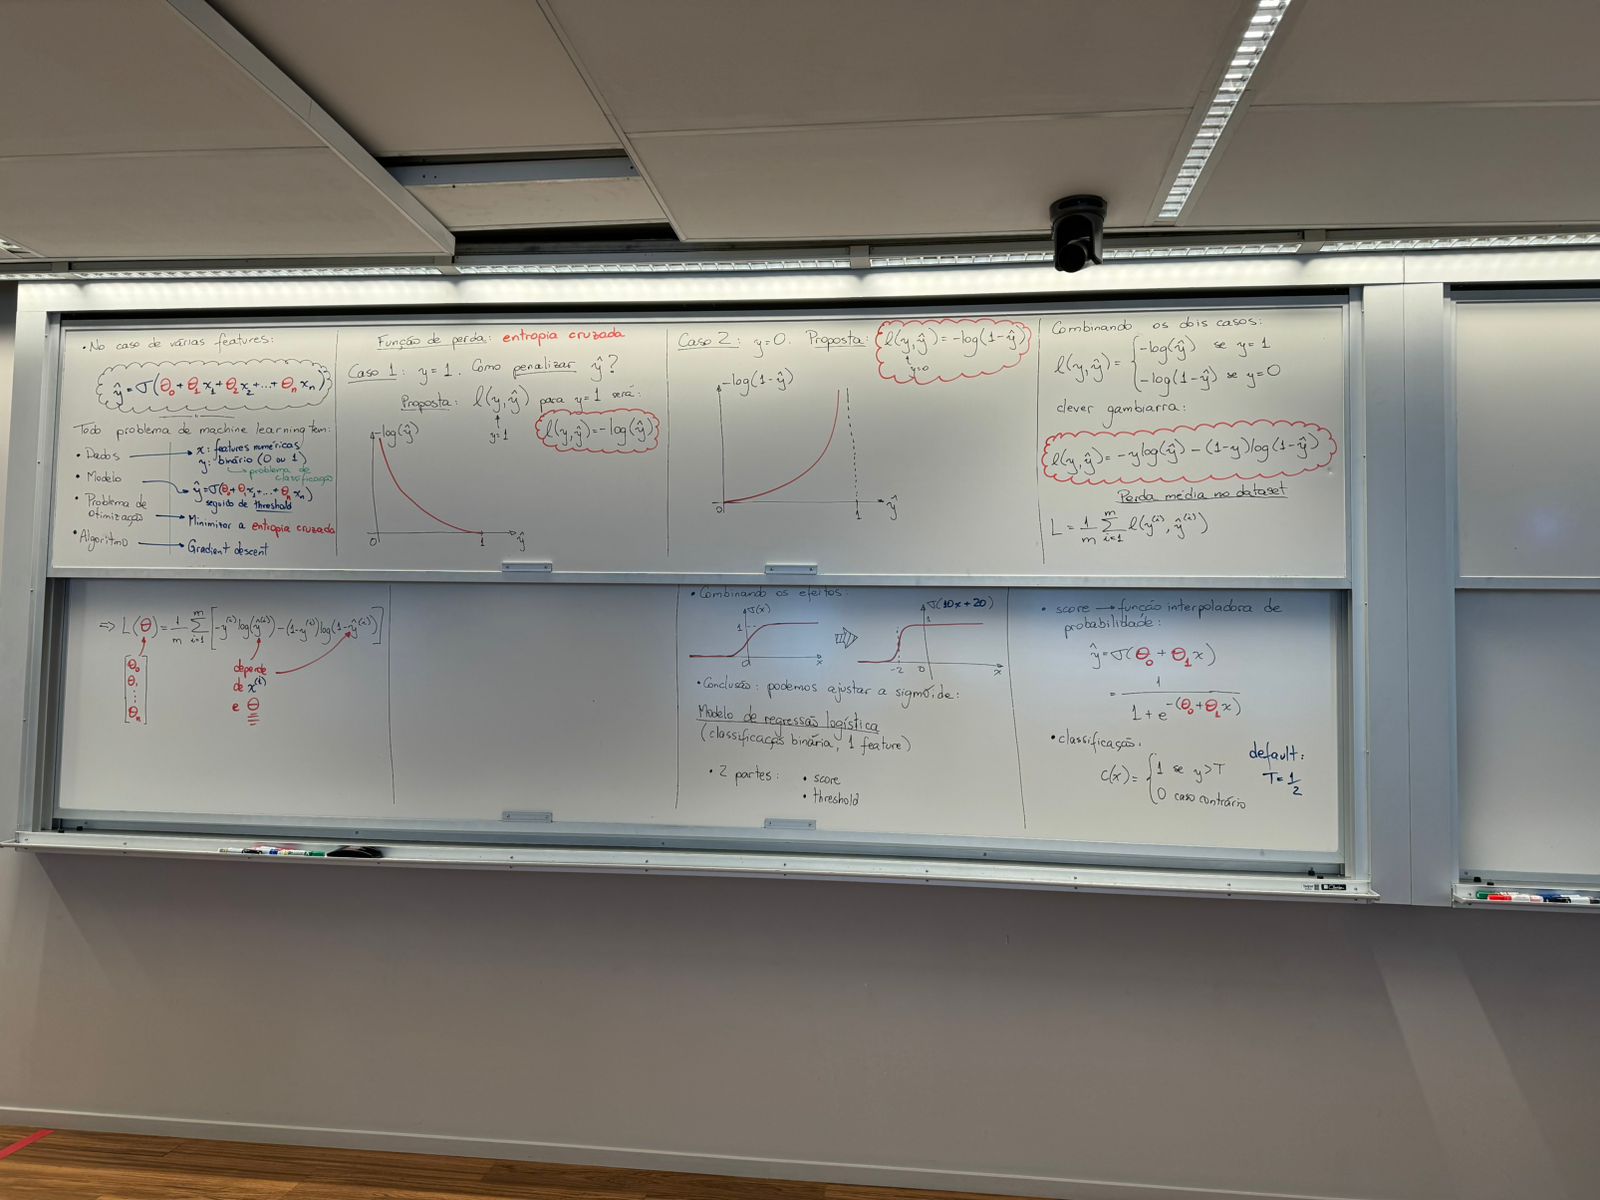 • No caso de várias features:
ŷ = σ(θ₀ + θ₁x₁ + θ₂x₂ + ... + θₙxₙ)
Todo problema de machine learning tem:
• Dados → x: features numéricas
y: binário (0 ou 1)
↳ problema de classificação
• Modelo → ŷ = σ(θ₀ + θ₁x₁ + ... + θₙxₙ)
seguido de threshold
• Problema de otimização → Minimizar a entropia cruzada
• Algoritmo → Gradient descent
Função de perda: entropia cruzada
Caso 1: y = 1. Como penalizar ŷ?
Proposta: l(y, ŷ) para y = 1 será:
y=1
l(y, ŷ) = -log(ŷ)
-log(ŷ)
0
1
ŷ
Caso 2: y = 0. Proposta: l(y, ŷ) = -log(1-ŷ)
y=0
-log(1-ŷ)
0
1
ŷ
Combinando os dois casos:
l(y, ŷ) = { -log(ŷ) se y = 1
-log(1-ŷ) se y = 0
clever gambiarra:
l(y, ŷ) = -y log(ŷ) - (1-y) log(1-ŷ)
Perda média no dataset
L = 1/m Σᵢ₌₁ᵐ l(y⁽ⁱ⁾, ŷ⁽ⁱ⁾)
⇒ L(θ) = 1/m Σᵢ₌₁ᵐ [-y⁽ⁱ⁾ log(ŷ⁽ⁱ⁾) - (1-y⁽ⁱ⁾) log(1-ŷ⁽ⁱ⁾)]
[θ₀
θ₁
⋮
θₙ]
depende
de x⁽ⁱ⁾
e θ
• Combinando os efeitos:
σ(x)
1
0
x
σ(10x + 20)
1
-2
0
x
• Conclusão: podemos ajustar a sigmóide:
Modelo de regressão logística
(classificação binária, 1 feature)
• 2 partes: • score
• threshold
• score → função interpoladora de
probabilidade:
ŷ = σ(θ₀ + θ₁x)
= 1 / (1 + e^-(θ₀ + θ₁x))
• classificação.
C(x) = { 1 se y > T
0 caso contrário
default:
T = 1/2